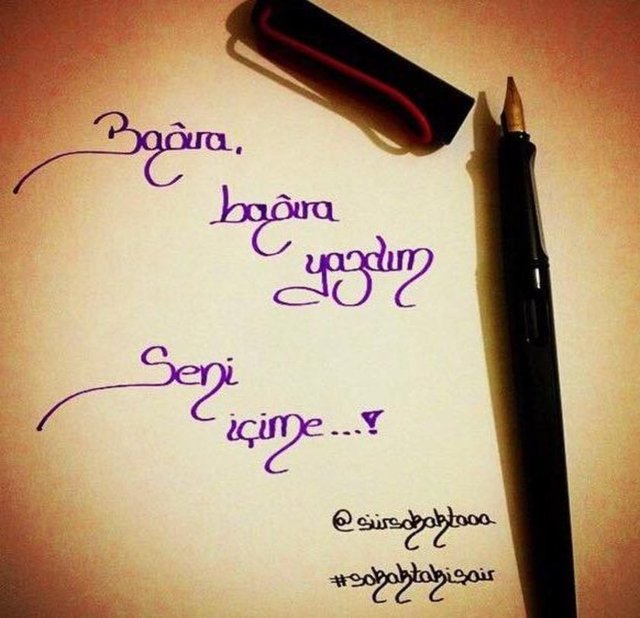 Bağıra,
bağıra
yazdım
Seni
içime...!
@siirsokaktaaa
#sokaktakisair